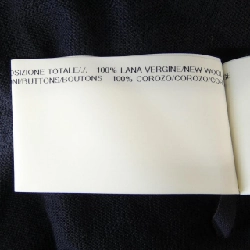 OSIZIONE TOTALE/ 100% LANA VERGINE/NEW WOOL
NI/BUTTONS/BOUTONS 100% COROZO/COROZO/CO